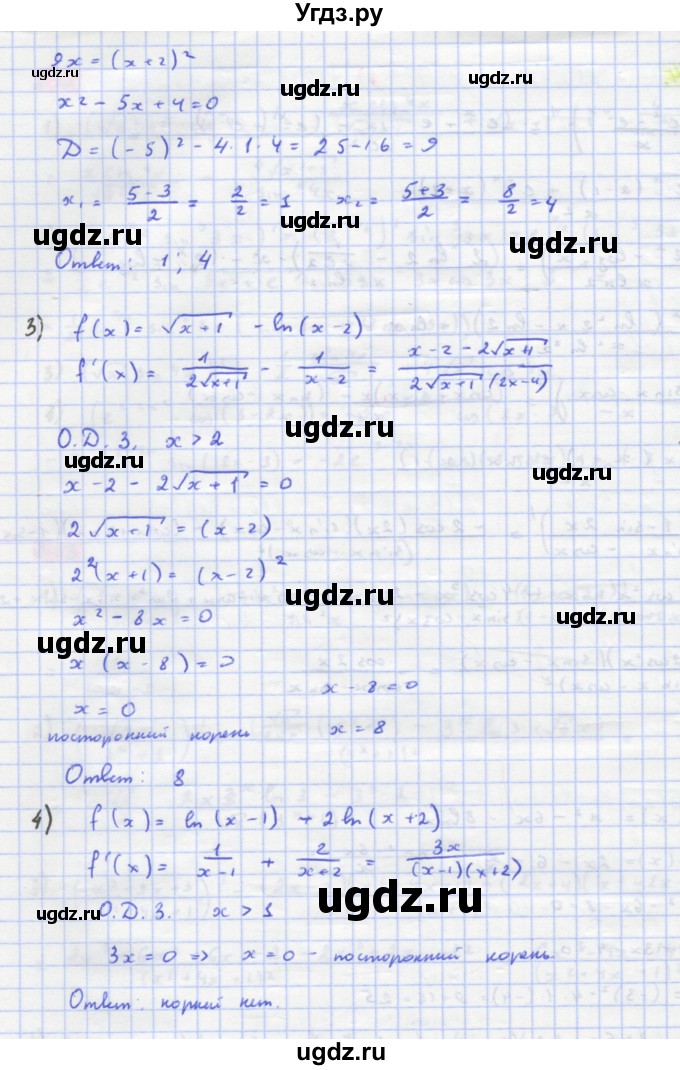 Угдз.ру
9x = (x+2)²
ugdz.ru
ugdz.ru
x² - 5x + 4 = 0
ugdz.ru
D = (-5)² - 4·1·4 = 25-16 = 9
x₁ = (5-3)/2 = 2/2 = 1    x₂ = (5+3)/2 = 8/2 = 4
ugdz.ru
ugdz.ru
ugdz.ru
Ответ: 1; 4
3) f(x) = √(x+1) - ln(x-2)
f'(x) = 1/(2√(x+1)) - 1/(x-2) = (x-2-2√(x+1))/(2√(x+1)(2x-4))
ugdz.ru
О.Д.З. x > 2
ugdz.ru
ugdz.ru
x - 2 - 2√(x+1) = 0
2√(x+1) = (x-2)
2²(x+1) = (x-2)²
ugdz.ru
x² - 8x = 0
ugdz.ru
ugdz.ru
x (x-8) = 0
x = 0    x - 8 = 0
посторонний корень    x = 8
Ответ: 8
4) f(x) = ln(x-1) + 2ln(x+2)
f'(x) = 1/(x-1) + 2/(x+2) = 3x/((x-1)(x+2))
ugdz.ru
ugdz.ru
ugdz.ru
О.Д.З. x > 1
3x = 0 => x = 0 - посторонний корень.
Ответ: корней нет.
ugdz.ru